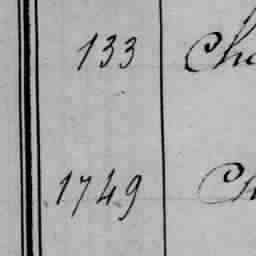 133 Cho
1749 Ch